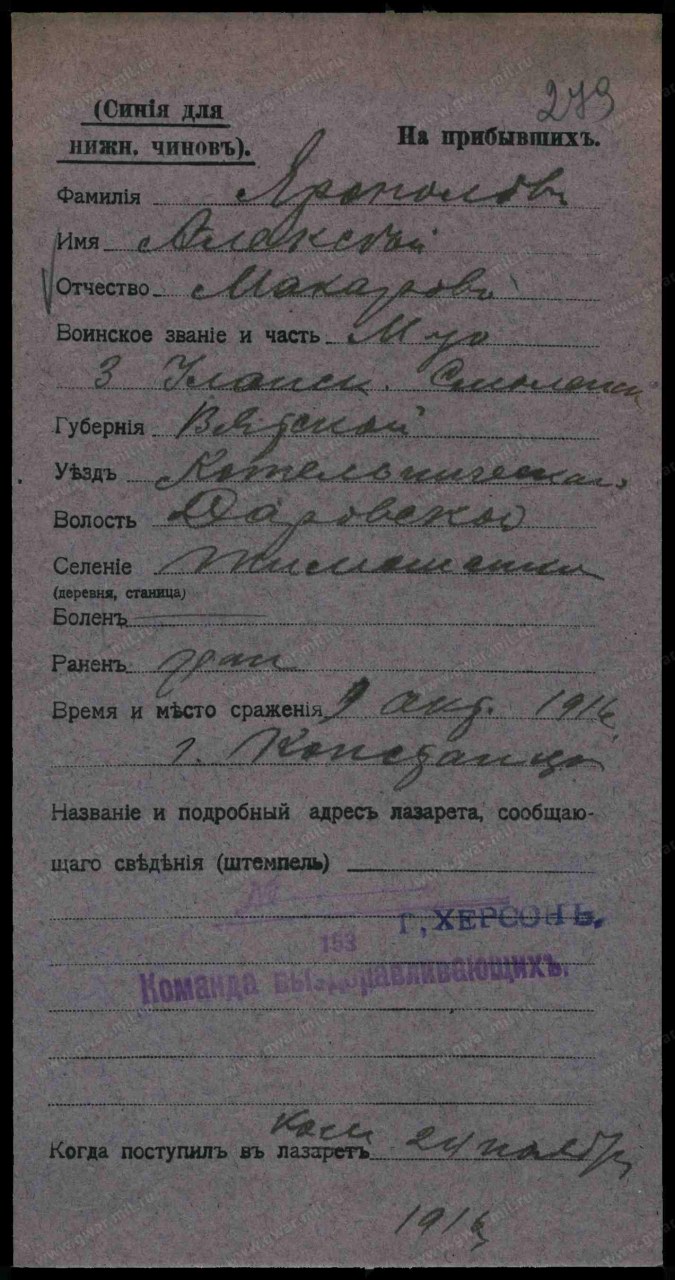 273
(Синія для
нижн. чиновъ).
На прибывшихъ.
Фамилія Ярополовъ
Имя Алексѣй
Отчество Макаровъ
Воинское званіе и часть
3 Уланск. Смоленск
Губернія Вятской
Уѣздъ Котельническаго
Волость Даровской
Селеніе Тимошенки
(деревня, станица)
Боленъ
Раненъ ран
Время и мѣсто сраженія 9 окт. 1916
г. Констанца
Названіе и подробный адресъ лазарета, сообщаю-
щаго свѣдѣнія (штемпель)
Г, ХЕРСОНЪ.
153
Команда выздоравливающихъ.
ком
Когда поступилъ въ лазаретъ 24 ноября
1916